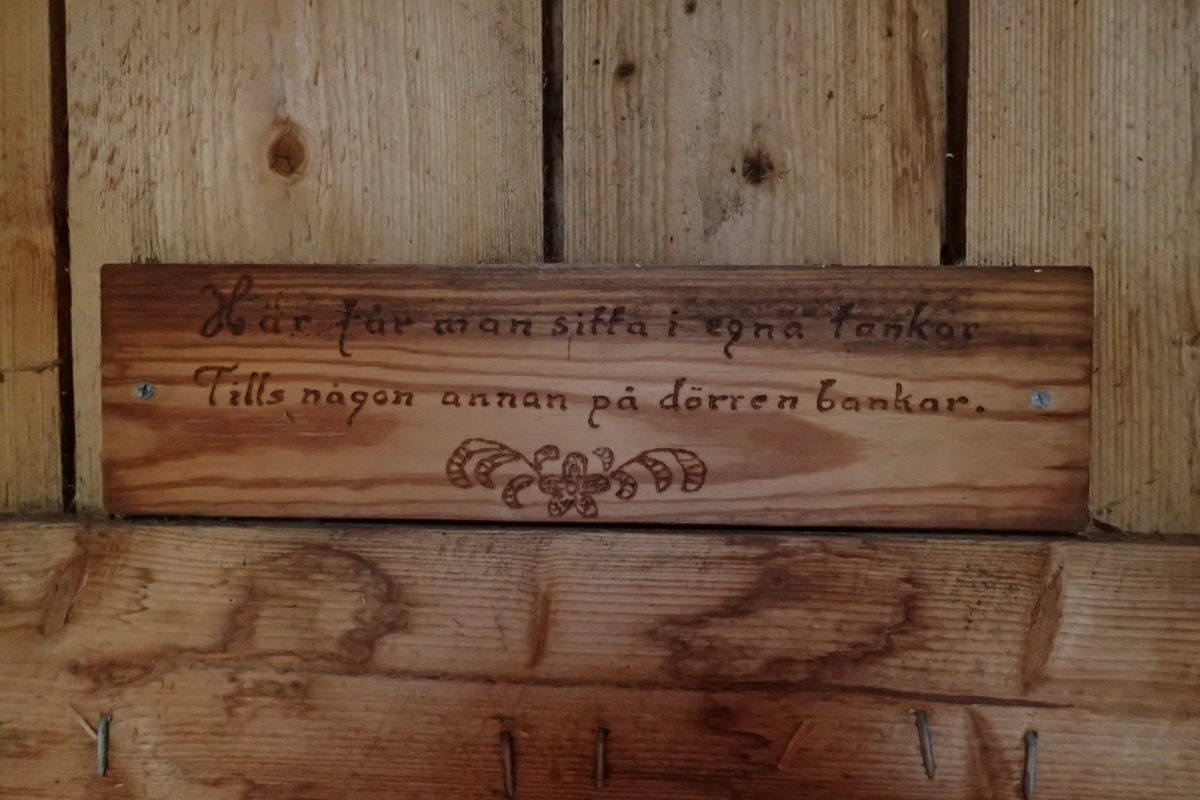 Här får man sitta i egna tankar
Tills någon annan på dörren bankar.